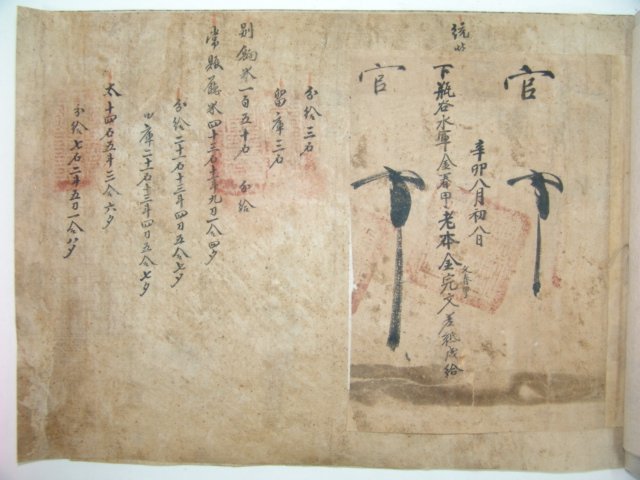 官
辛卯八月初八日
下甁谷水軍金春甲老本金完文差祧成給
官
分給三石
留庫三石
別餉米一百五十石 分給
常賑廳米四十三石十二斗九刀一合四夕
分給二十一石十三斗四刀五合七夕
留庫二十一石十三斗四刀五合七夕
太十四石五斗三合六夕
分給七石二斗五刀一合八夕